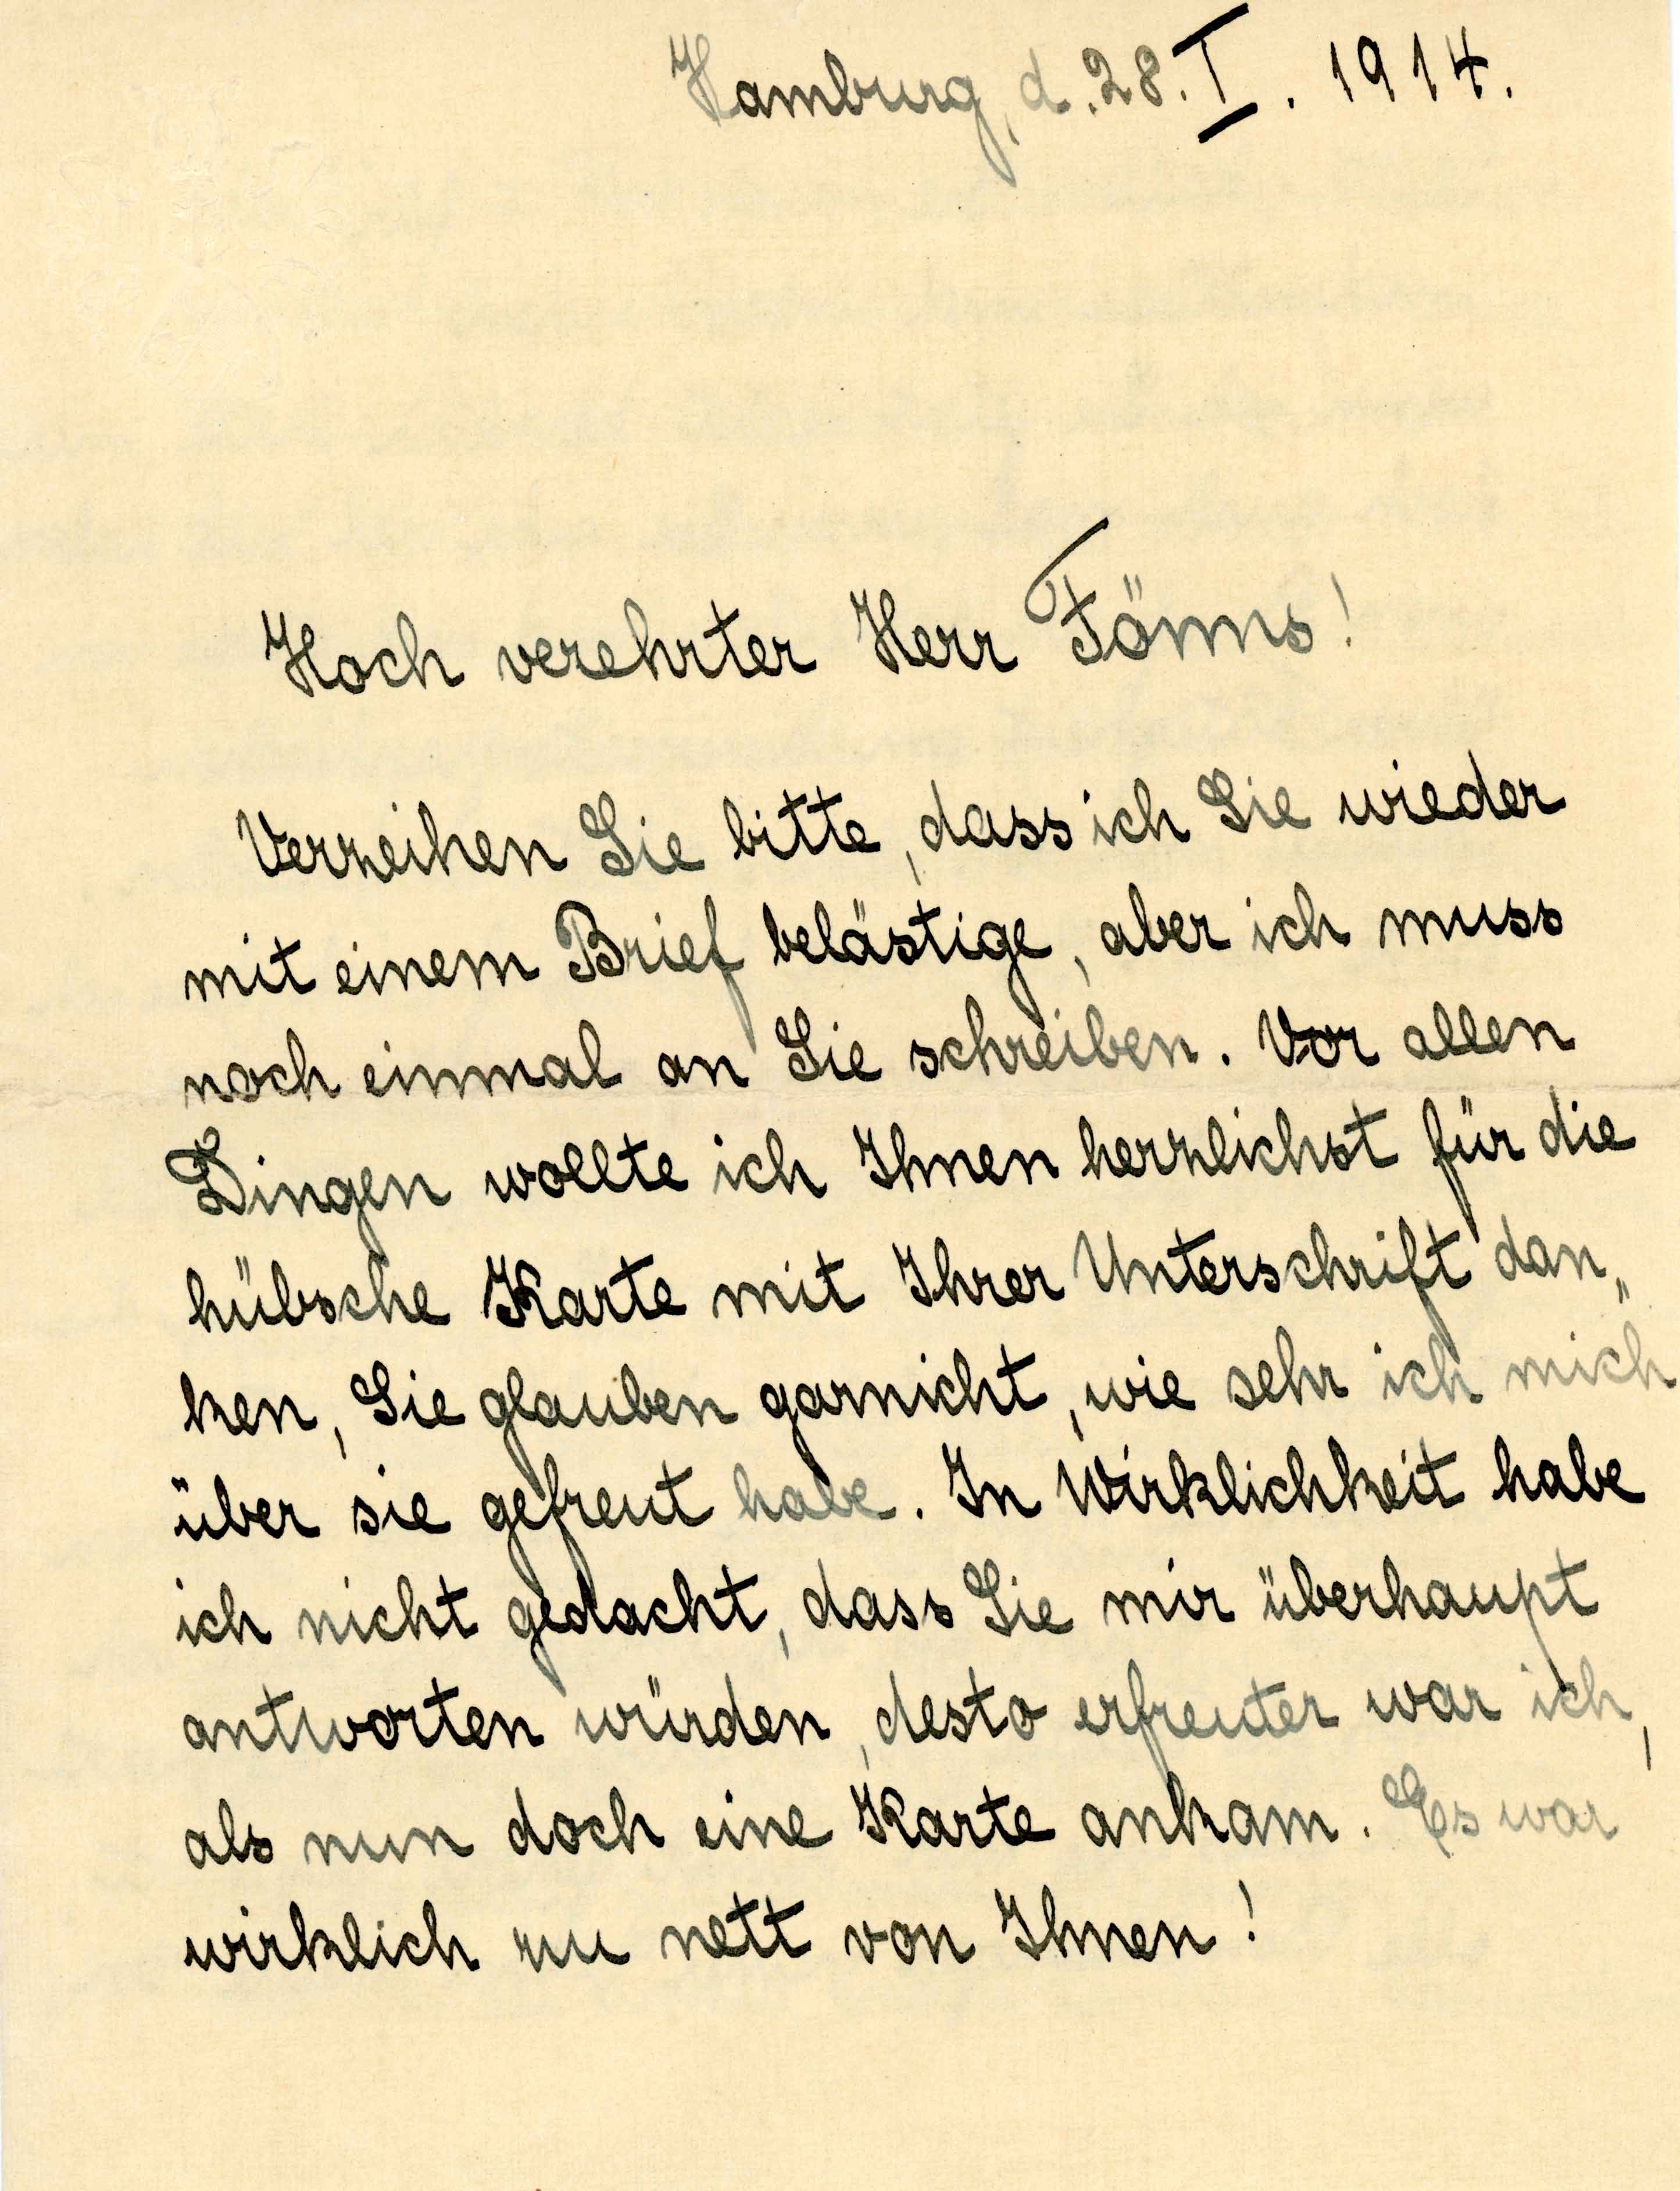 Hamburg, d. 28. I. 1914.
Hoch verehrter Herr Fönns!
Verzeihen Sie bitte, dass ich Sie wieder
mit einem Brief belästige, aber ich muss
noch einmal an Sie schreiben. Vor allen
Dingen wollte ich Ihnen herzlichst für die
hübsche Karte mit Ihrer Unterschrift dan„
ken, Sie glauben garnicht, wie sehr ich mich
über sie gefreut habe. In Wirklichkeit habe
ich nicht gedacht, dass Sie mir überhaupt
antworten würden, desto erfreuter war ich,
als nun doch eine Karte ankam. Es war
wirklich zu nett von Ihnen!